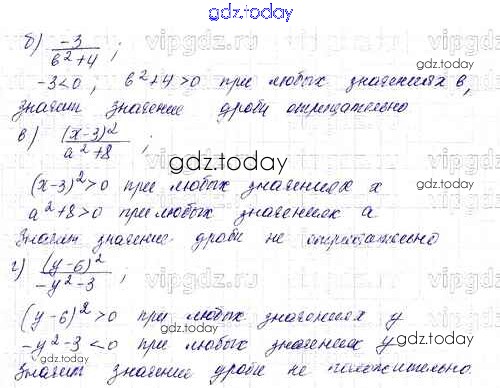 gdz.today
б) -3/(в²+4) ;
-3<0, в²+4>0 при любых значениях в,
значит значение дроби отрицательно
в) (x-3)²/(a²+8) ;
gdz.today
(x-3)²>0 при любых значениях x
a²+8>0 при любых значениях a
Значит значение дроби не отрицательно
г) (y-6)²/(-y²-3) ;
(y-6)²>0 при любых значениях y
-y²-3<0 при любых значениях y
Значит значение дроби не положительно.
gdz.today
vipgdz.ru